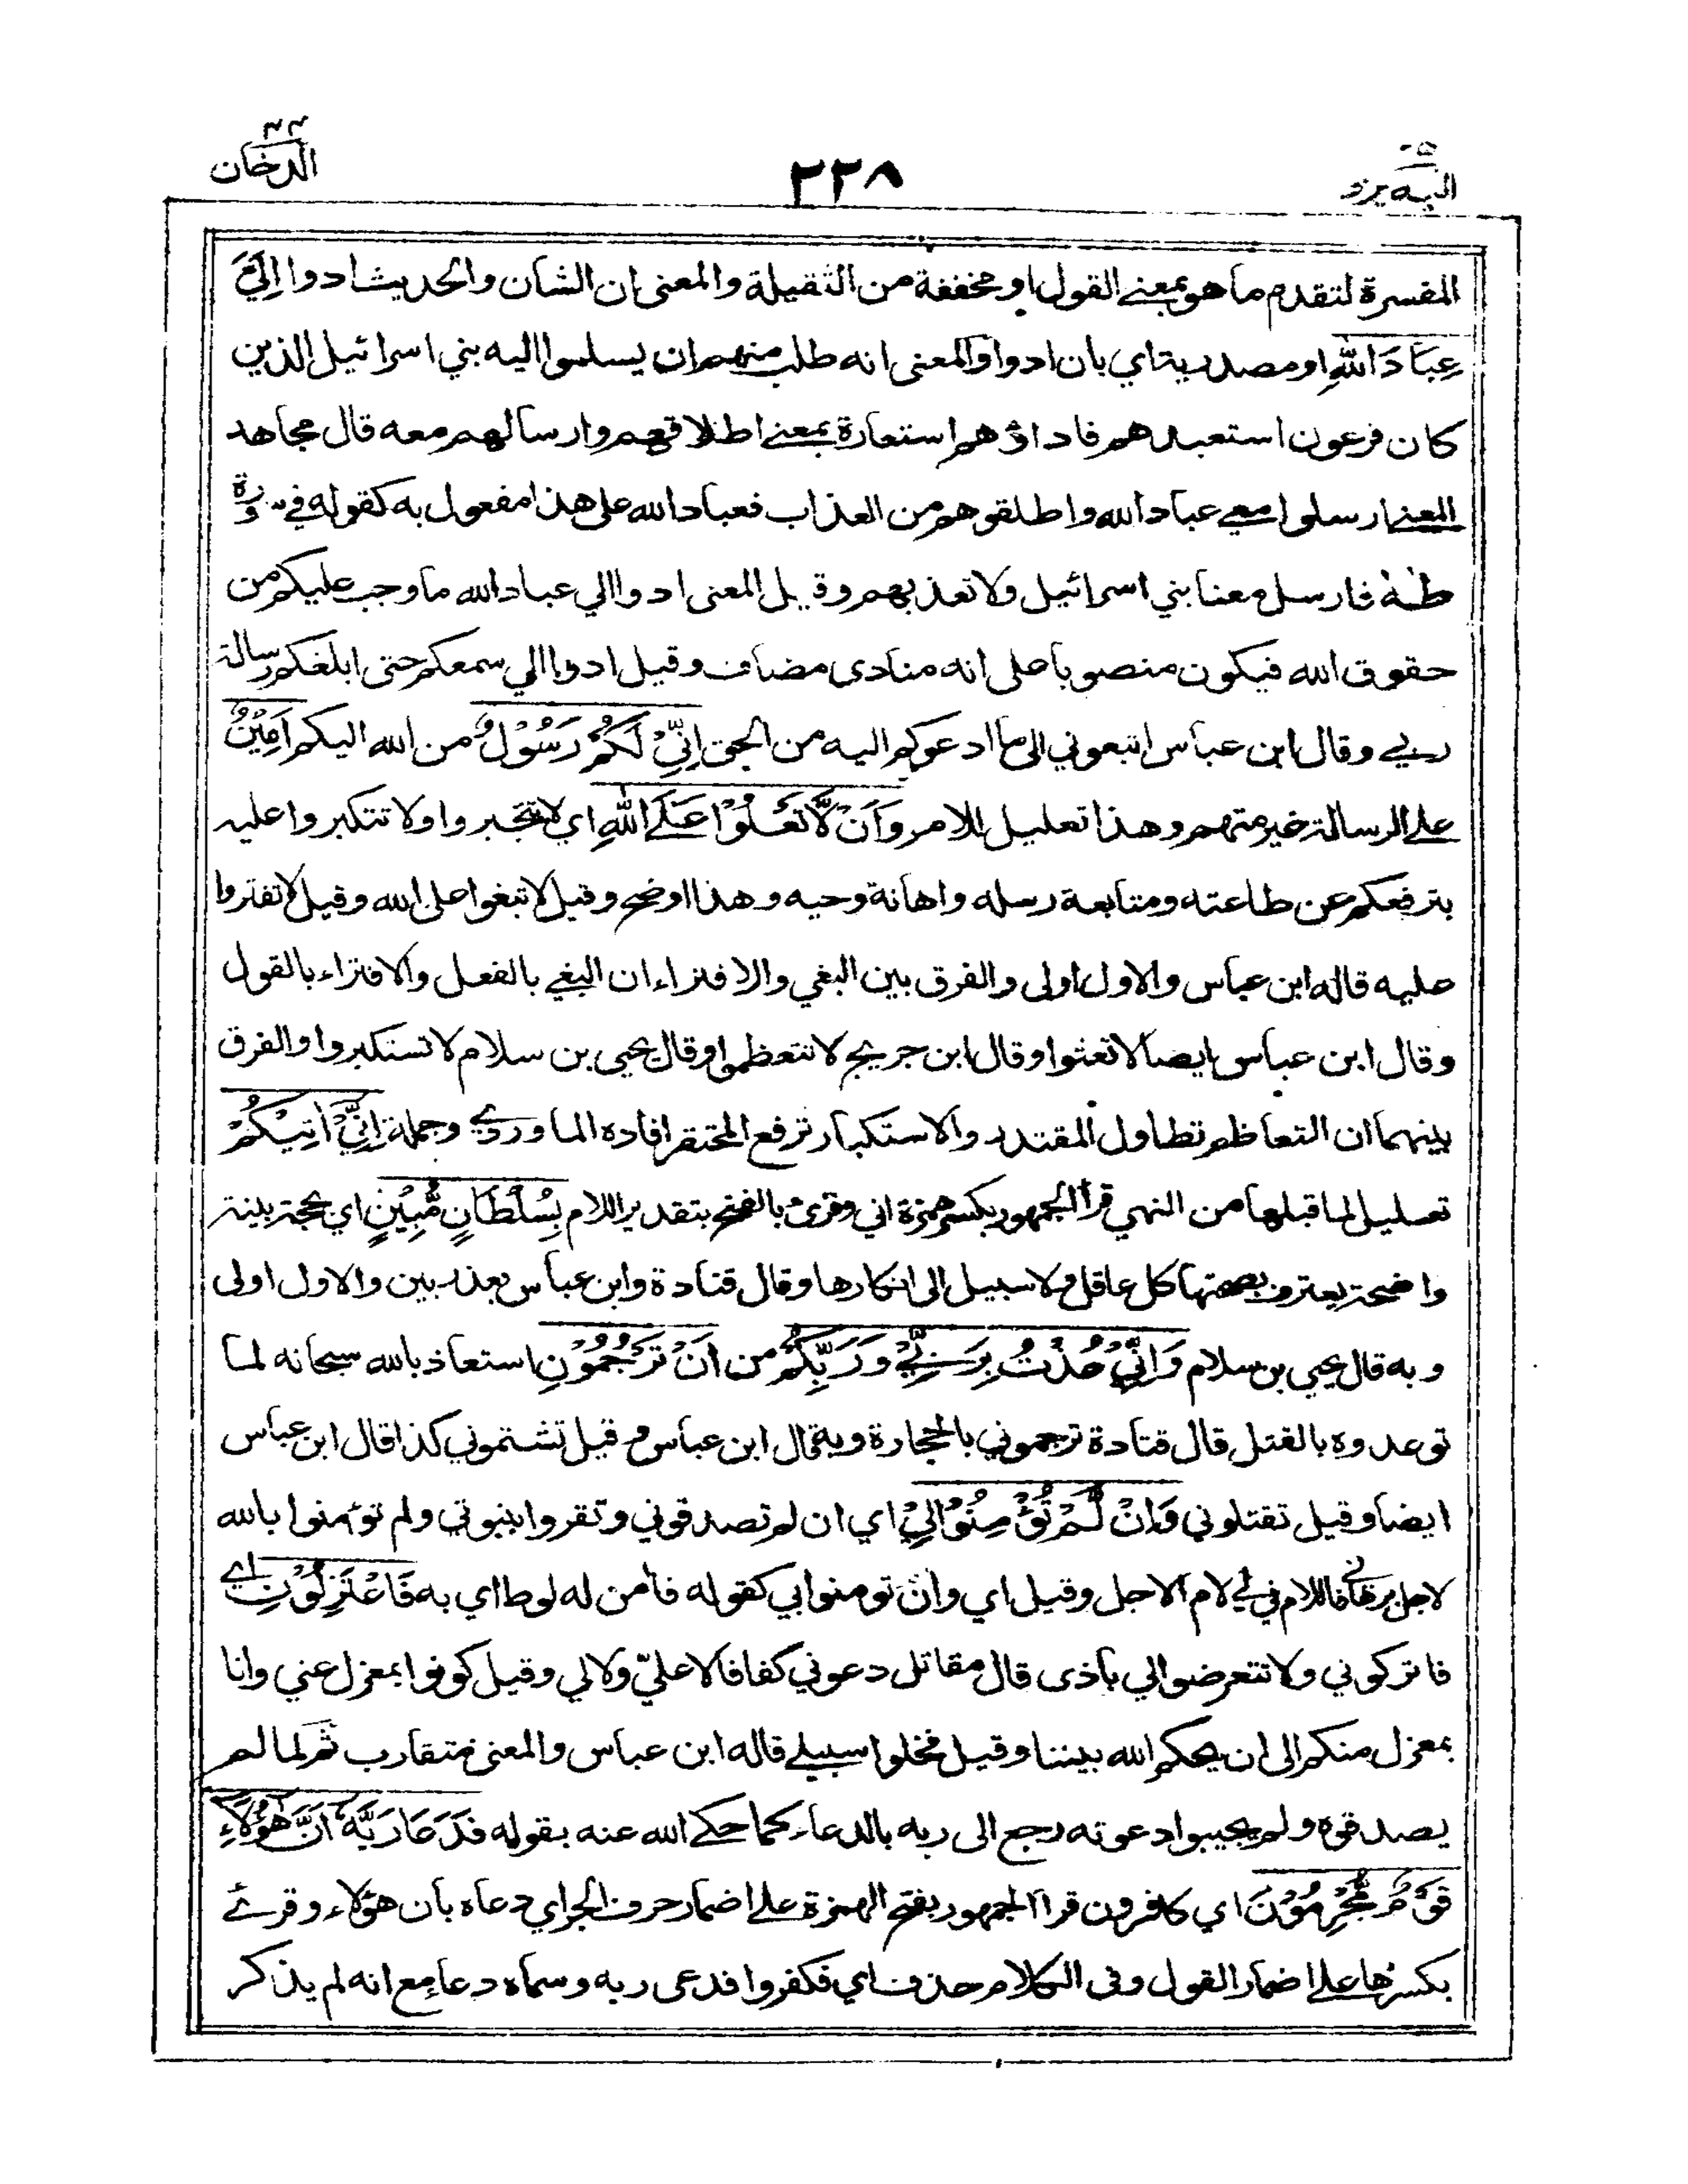 ٤٤
الدخان
٢٢٨
٢٥
اليه يرد
المفسرة لتقدم ما هو بمعنى القول او مخففة من الثقيلة والمعنى ان الشأن والحديث ادوا اِلَيَّ
عِبَادَ اللّٰهِ او مصدرية اي بان ادوا والمعنى انه طلب منهم ان يسلموا اليه بني اسرائيل الذين
كان فرعون استعبدهم فاداؤهم استعارة بمعنى اطلاقهم وارسالهم معه قال مجاهد
المعنى ارسلوا معي عباد الله واطلقوهم من العذاب فعباد الله على هذا مفعول به كقوله في سورة
طٰهٰ فارسل معنا بني اسرائيل ولا تعذبهم وقيل المعنى ادوا الي عباد الله ما وجب عليكم من
حقوق الله فيكون منصوبا على انه منادى مضاف وقيل ادوا الي سمعكم حتى ابلغكم رسالة
ربي وقال ابن عباس اتبعوني الى ما ادعوكم اليه من الحق اِنِّيْ لَكُمْ رَسُوْلٌ من الله اليكم اَمِيْنٌ
على الرسالة خير متهم وهذا تعليل للامر وَاَنْ لَّا تَعْلُوْا عَلَى اللّٰهِ اي لا تتجبروا ولا تتكبروا عليه
بترفعكم عن طاعته ومتابعة رسله واهانة وحيه وهذا اوضح وقيل لا تبغوا على الله وقيل لا تفتروا
عليه قاله ابن عباس والاول اولى والفرق بين البغي والافتراء ان البغي بالفعل والافتراء بالقول
وقال ابن عباس ايضا لا تعثوا وقال ابن جريج لا تتعظموا وقال يحيى بن سلام لا تستكبروا والفرق
بينهما ان التعاظم تطاول المقتدر والاستكبار ترفع المحتقر افاده الماوردي وجملة اِنِّيْ اٰتِيْكُمْ
تعليل لما قبلها من النهي قرأ الجمهور بكسر همزة اني وقرئ بالفتح بتقدير اللام بِسُلْطَانٍ مُّبِيْنٍ اي بحجة بينة
واضحة يعترف بصحتها كل عاقل ولا سبيل الى انكارها وقال قتادة وابن عباس بعذر بين والاول اولى
وبه قال يحيى بن سلام وَاِنِّيْ عُذْتُ بِرَبِّيْ وَرَبِّكُمْ من اَنْ تَرْجُمُوْنِ استعاذ بالله سبحانه لما
توعدوه بالقتل قال قتادة ترجموني بالحجارة وبه قال ابن عباس و قيل تشتموني كذا قال ابن عباس
ايضا وقيل تقتلوني وَاِنْ لَّمْ تُؤْمِنُوْا لِيْ اي ان لم تصدقوني وتقروا بنبوتي ولم تؤمنوا بالله
لاجل برهاني فاللام في لي لام الاجل وقيل اي وان تومنوا بي كقوله فآمن له لوط اي به فَاعْتَزِلُوْنِ اي
فاتركوني ولا تتعرضوا لي باذى قال مقاتل دعوني كفافا لا عليّ ولا لي وقيل كونوا بمعزل عني وانا
بمعزل منكم الى ان يحكم الله بيننا وقيل فخلوا سبيلي قاله ابن عباس والمعنى متقارب ثم لما لم
يصدقوه ولم يجيبوا دعوته رجع الى ربه بالدعاء كما حكى الله عنه بقوله فَدَعَا رَبَّهٗ اَنَّ هٰؤُلَاءِ
قَوْمٌ مُّجْرِمُوْنَ اي كافرون قرأ الجمهور بفتح الهمزة على اضمار حرف الجر اي دعاه بأن هؤلاء وقرئ
بكسرها على اضمار القول وفي الكلام حذف اي فكفروا فدعى ربه وسماه دعاء مع انه لم يذكر